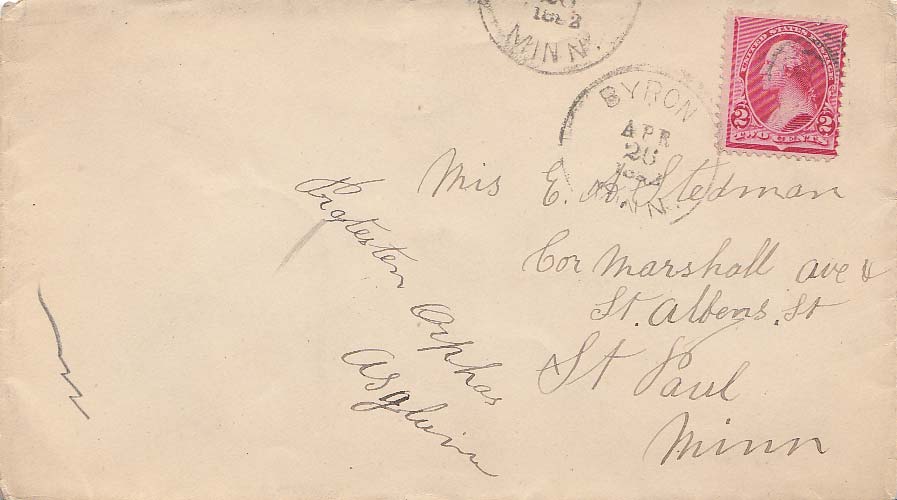 MINN.
BYRON
APR
MINN.
UNITED STATES POSTAGE
2 2
TWO CENTS
Mis E. A. Stedman
Cor Marshall ave &
St. Albens. St
St Paul
Minn
Protesten Orphas
Asylum